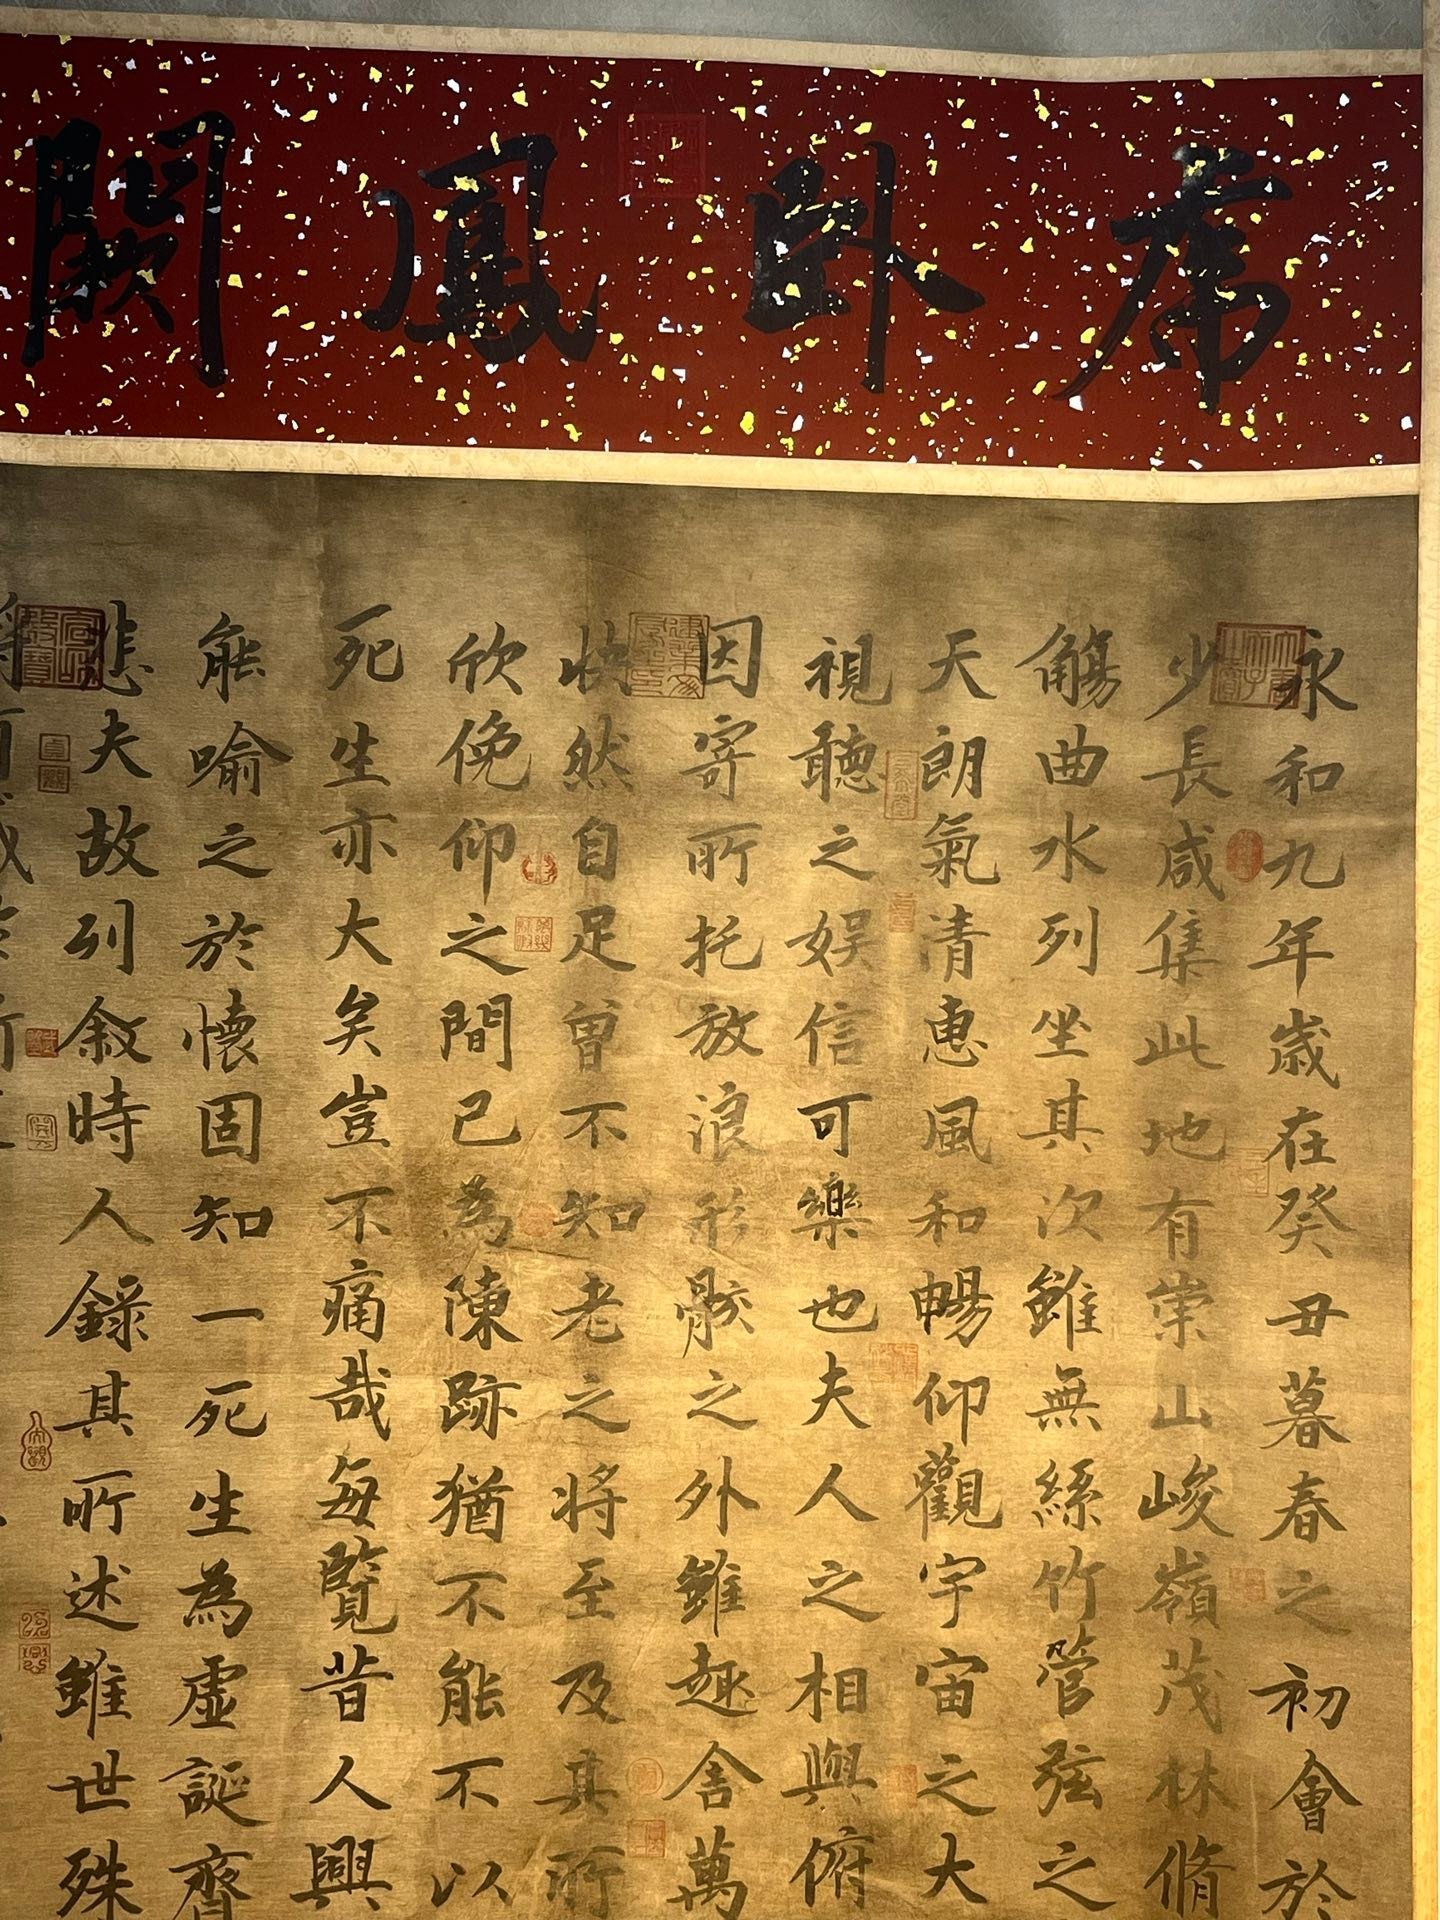 虎臥鳳闕
永和九年歲在癸丑暮春之初會於
少長咸集此地有崇山峻嶺茂林脩
觴曲水列坐其次雖無絲竹管弦之
天朗氣清惠風和暢仰觀宇宙之大
視聽之娛信可樂也夫人之相與俯
因寄所托放浪形骸之外雖趣舍萬
快然自足曾不知老之將至及其所
欣俛仰之間已為陳跡猶不能不以
死生亦大矣豈不痛哉每覽昔人興
能喻之於懷固知一死生為虛誕齊
悲夫故列敘時人錄其所述雖世殊